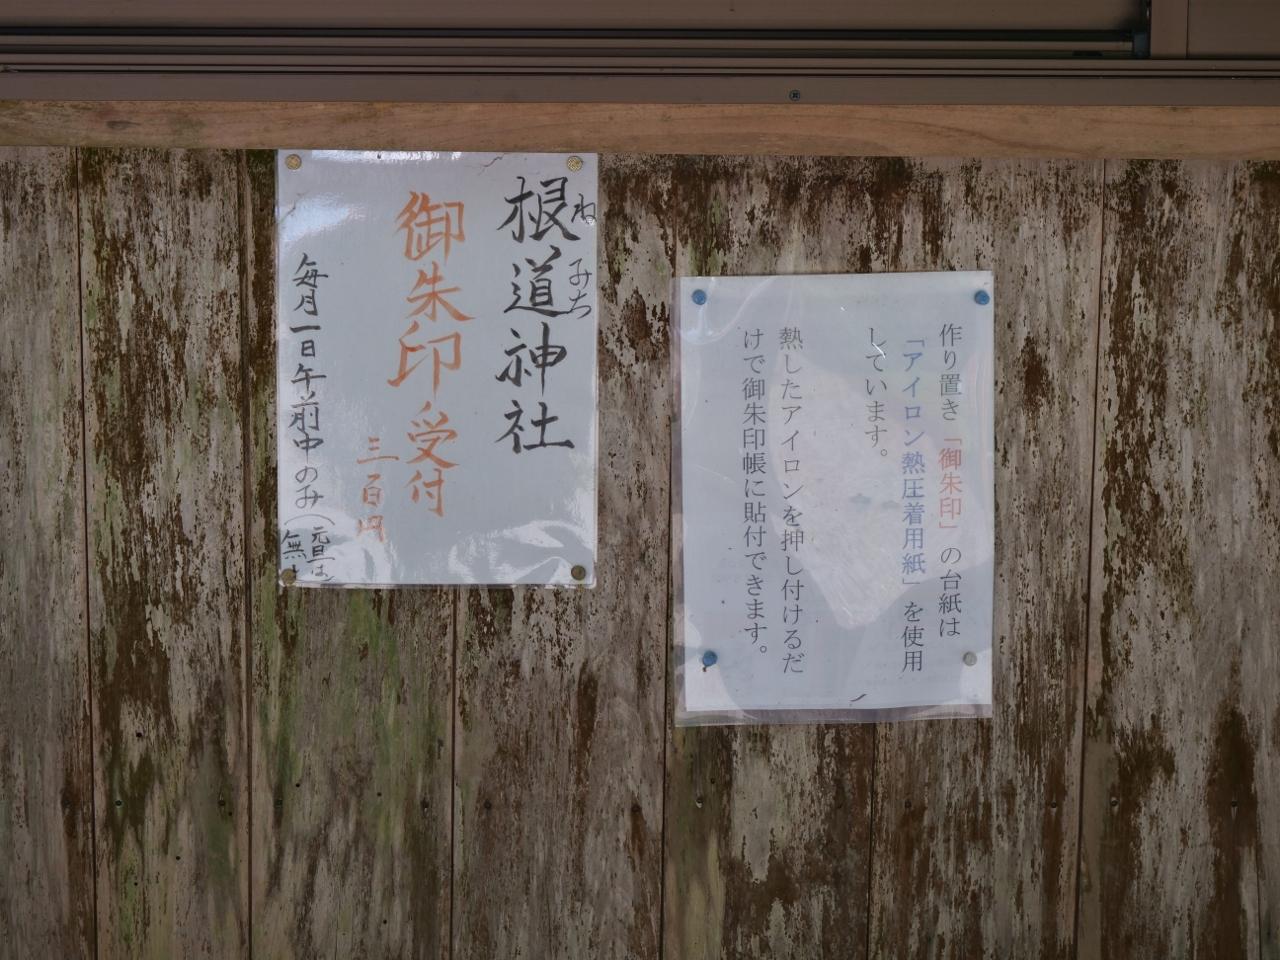 根道神社
ねみち
御朱印受付
三百円
毎月一日午前中のみ(元旦は
無
作り置き「御朱印」の台紙は
「アイロン熱圧着用紙」を使用
しています。
熱したアイロンを押し付けるだ
けで御朱印帳に貼付できます。